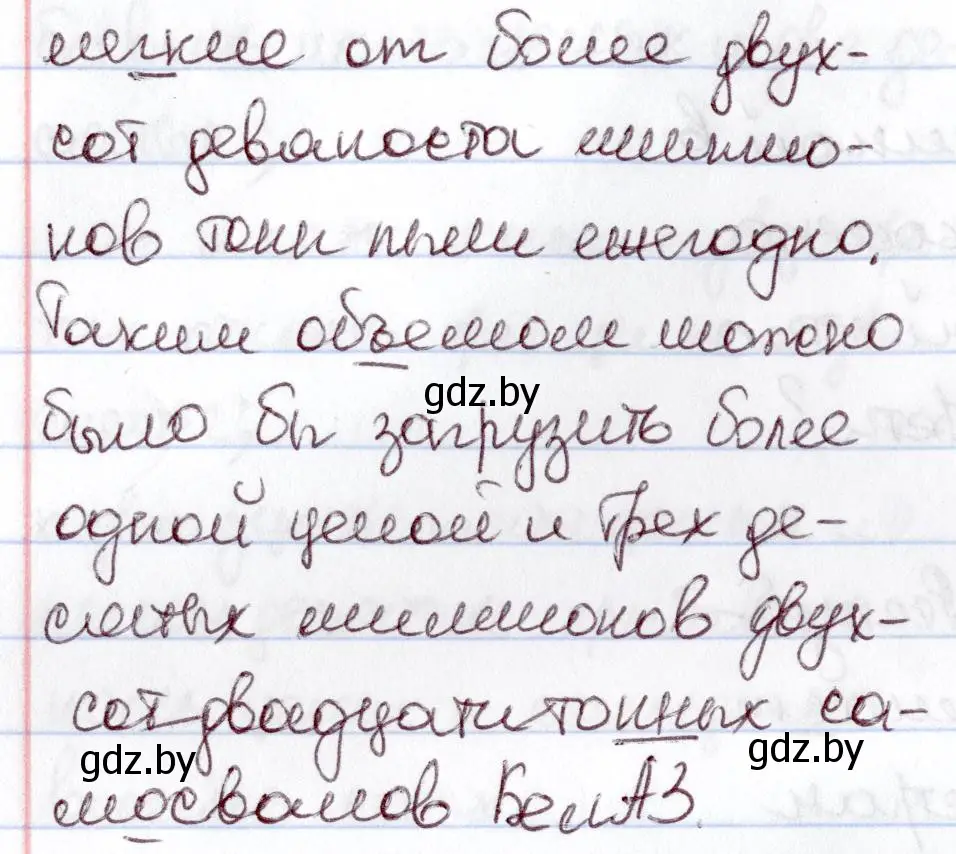 легкие от более двух-
сот девяноста миллио-
нов тонн пыли ежегодно.
Таким объемом можно
gdz.by
было бы загрузить более
одной целой и трех де-
сятых миллионов двух-
сотдвадцатитонных са-
gdz.by
gdz.by
мосвалов БелАЗ.